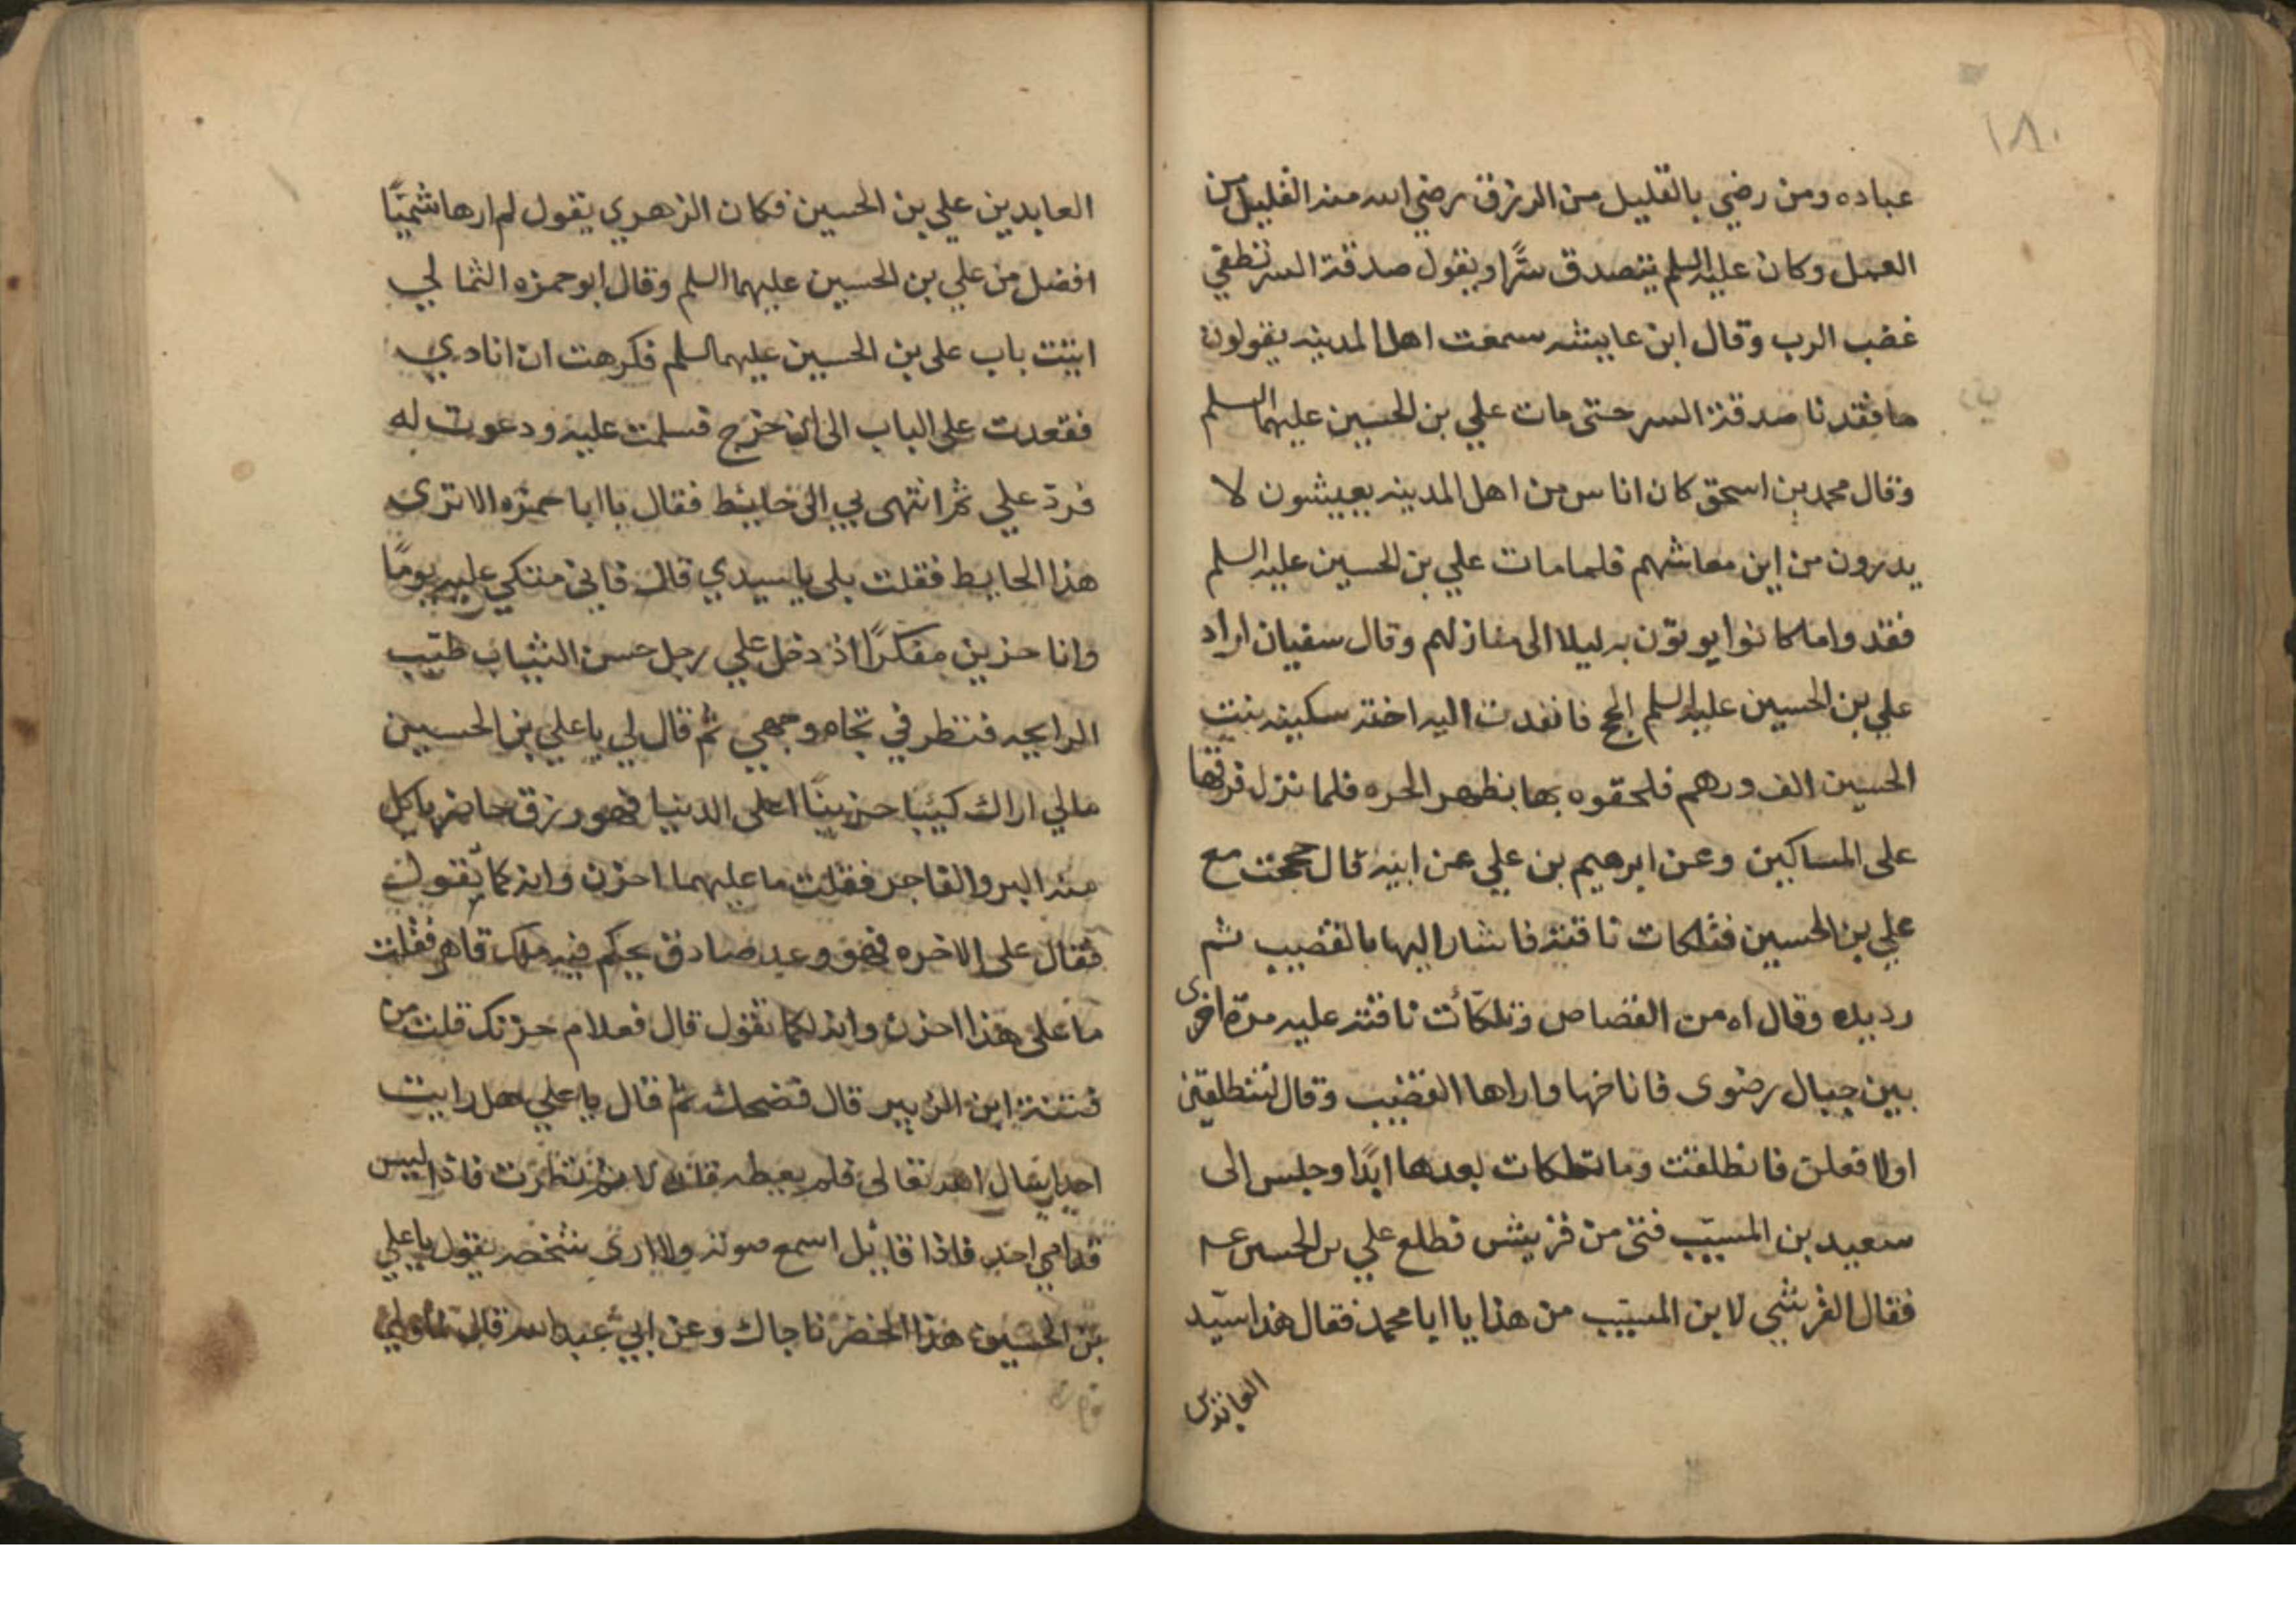 ١٨٠
عباده ومن رضي بالقليل من الرزق رضي الله منه القليل من
العمل وكان عليه السلم يتصدق سرًّا ويقول صدقة السر تطفي
غضب الرب وقال ابن عايشه سمعت اهل المدينه يقولون
ما فقدنا صدقة السر حتى مات علي بن الحسين عليهما السلم
وقال محمد بن اسحق كان اناس من اهل المدينه يعيشون لا
يدرون من اين معاشهم فلما مات علي بن الحسين عليه السلم
فقدوا ما كانوا يوتون به ليلا الى منازلهم وقال سفيان اراد
علي بن الحسين عليه السلم الحج فانفدت اليه اخته سكينه بنت
الحسين الف درهم فلحقوه بها بظهر الحره فلما نزل فرقها
على المساكين وعن ابرهيم بن علي عن ابيه قال حججت مع
علي بن الحسين فتلكات ناقته فاشار اليها بالقضيب ثم
رد يده وقال اه من القصاص وتلكّأت ناقته عليه مرة اخرى
بين جبال رضوى فاناخها واراها القضيب وقال لتنطلقين
اولا فعلن فانطلقت وما تلكات بعدها ابدًا وجلس الى
سعيد بن المسيّب فتى من قريش فطلع علي بن الحسين عم
فقال القرشي لابن المسيّب من هذا يا ابا محمد فقال هذا سيّد
العابدين
العابدين علي بن الحسين فكان الزهري يقول لم ار هاشميًّا
افضل من علي بن الحسين عليهما السلم وقال ابو حمزه الثمالي
اتيت باب علي بن الحسين عليهما السلم فكرهت ان انادي
فقعدت على الباب الى ان خرج فسلمت عليه ودعوت له
فردّ علي ثم انتهى بي الى حايط فقال يا ابا حمزه الا ترى
هذا الحايط فقلت بلى يا سيدي قال فاني متكي عليه يومًا
وانا حزين مفكرًا اذ دخل علي رجل حسن الثياب طيّب
الرايحه فنظر في تجاه وجهي ثم قال لي يا علي بن الحسين
مالي اراك كئيبا حزينًا اعلى الدنيا فهو رزق حاضر ياكل
منه البر والفاجر فقلت ما عليهما احزن وانه كما تقول
فقال على الاخره فهو وعد صادق يحكم فيه ملك قاهر فقلت
ما على هذا احزن وانه لكما تقول قال فعلام حزنك قلت من
فتنة ابن الزبير قال فضحك ثم قال يا علي هل رايت
احدا سال الله تعالى فلم يعطه قلت لا ثم نظرت فاذا ليس
قدامي احد فاذا قايل اسمع صوته ولا ارى شخصه يقول يا علي
بن الحسين هذا الخضر ناجاك وعن ابي عبد الله قال